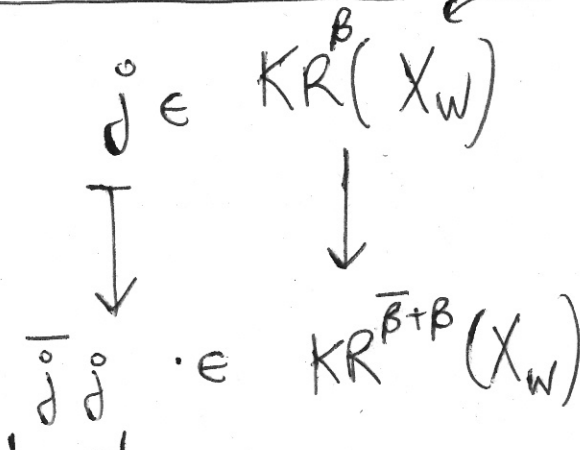 j̊ ∈ KR^β(X_W)
↧ ↓
j̊̅ j̊ · ∈ KR^{β̅+β}(X_W)